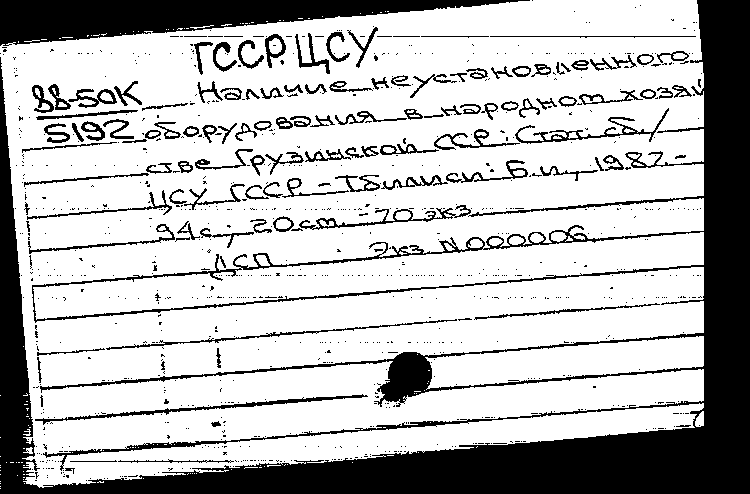 ГССР. ЦСУ.
88-50К
5192
Наличие неустановленного
оборудования в народном хозяй
стве Грузинской ССР: Стат. сб. /
ЦСУ ГССР. - Тбилиси: Б.и., 1987. -
94с.; 20см. - 70 экз.
ДСП Экз N000006.